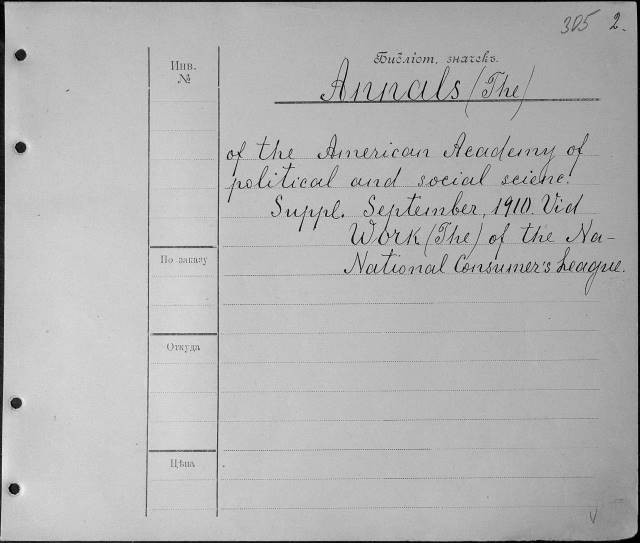 305 2.
Библіот. значекъ.
Инв.
№
Annals (The)
of the American Academy of
political and social scienc.
Suppl. September, 1910. Vid
Work (The) of the Na-
National Consumer's League.
По заказу
Откуда
Цѣна